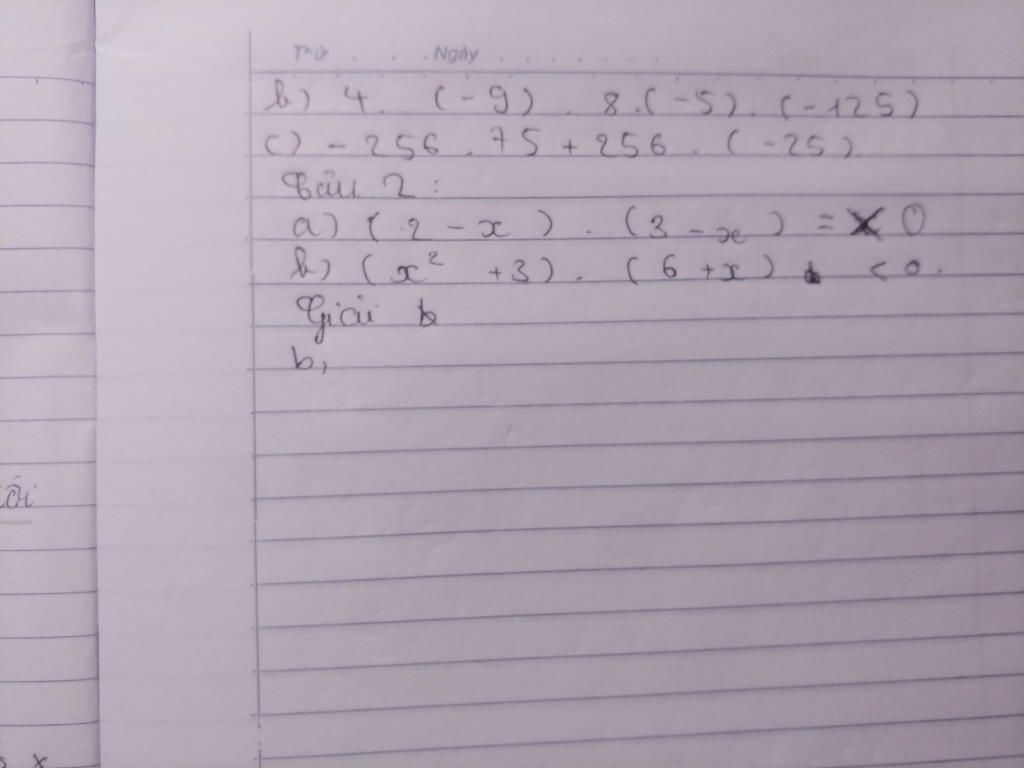 Thứ . . . . Ngày . . . . . . .
b) 4 . (-9) . 8.(-5).(-125)
c) -256 . 75 + 256 . (-25).
Câu 2:
a) (2 - x) . (3 - x) = 0
b) (x² + 3) . (6 + x) < 0.
Giải b
b,
ôi
x